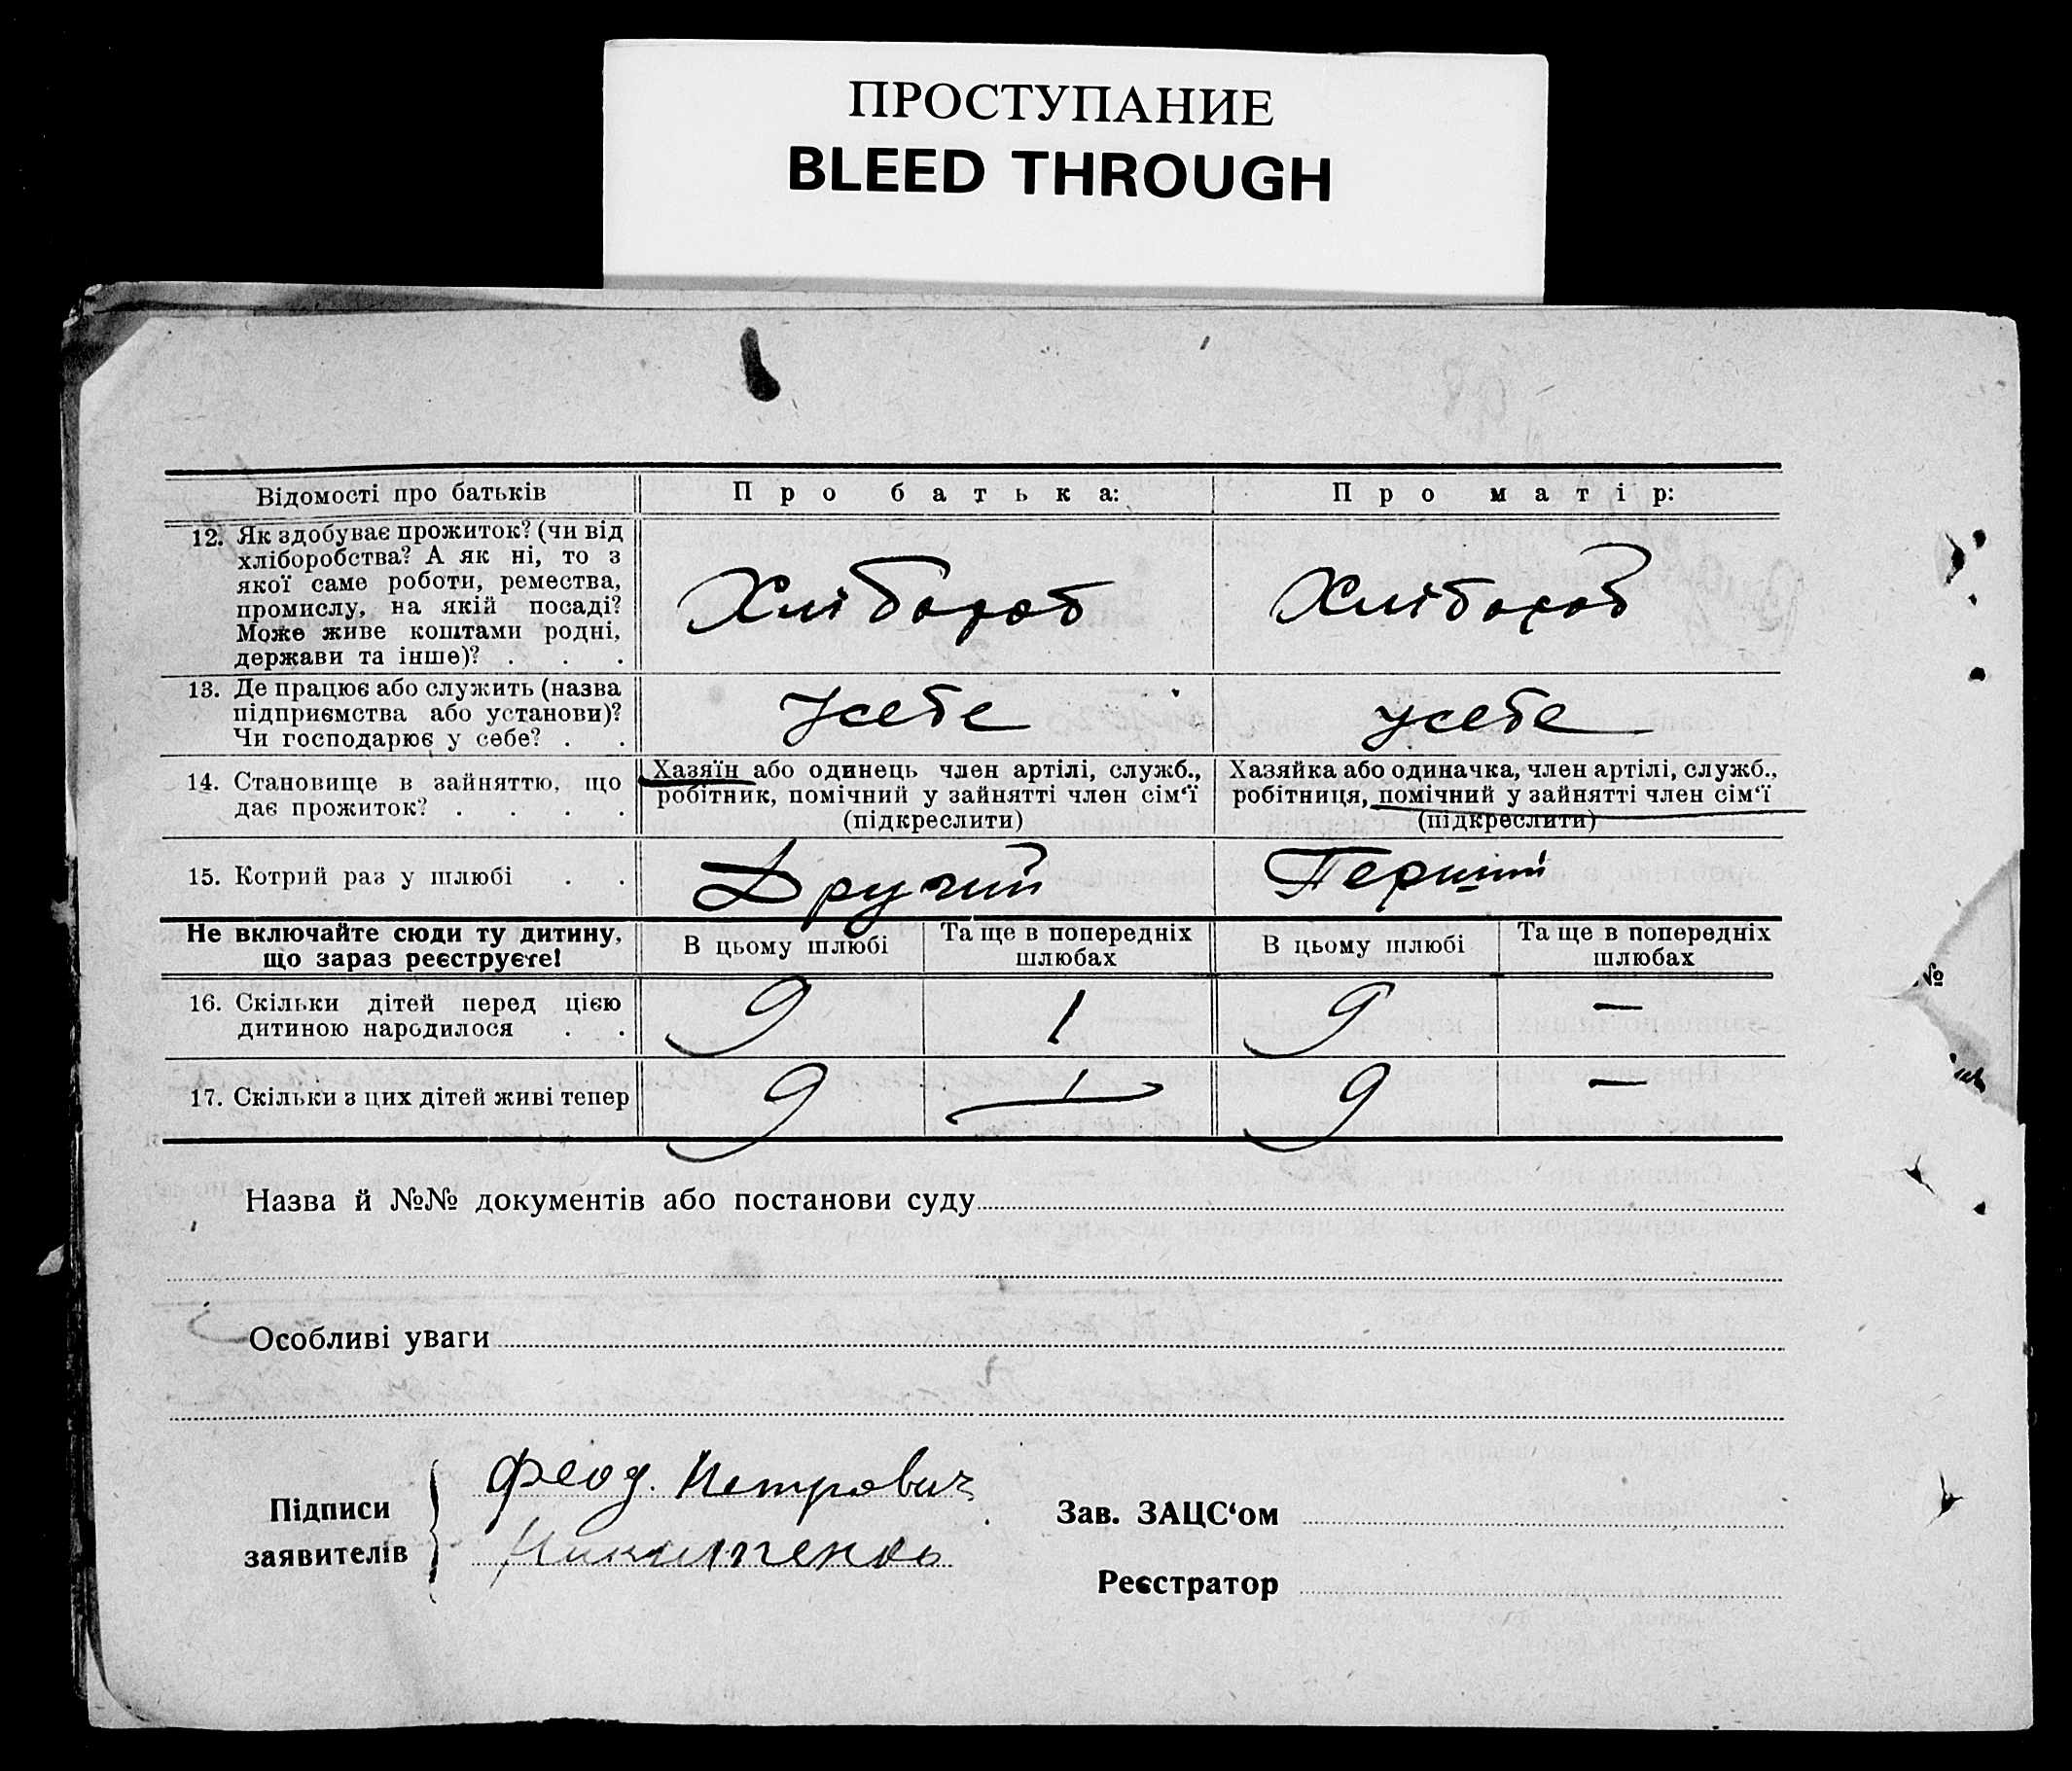 ПРОСТУПАНИЕ
BLEED THROUGH
Відомості про батьків
Про батька:
Про матір:
12. Як здобуває прожиток? (чи від
хліборобства? А як ні, то з
якої саме роботи, ремества,
промислу, на якій посаді?
Може живе коштами родні,
держави та інше)? . . .
Хлібороб
Хлібороб
13. Де працює або служить (назва
підприємства або установи)?
Чи господарює у себе? . .
Усебе
усебе
14. Становище в зайняттю, що
дає прожиток? . . . .
Хазяїн або одинець член артілі, служб.,
робітник, помічний у зайнятті член сім‘ї
(підкреслити)
Хазяйка або одиначка, член артілі, служб.,
робітниця, помічний у зайнятті член сім‘ї
(підкреслити)
15. Котрий раз у шлюбі . .
Другий
Перший
Не включайте сюди ту дитину,
що зараз реєструєте!
В цьому шлюбі
Та ще в попередніх
шлюбах
В цьому шлюбі
Та ще в попередніх
шлюбах
16. Скільки дітей перед цією
дитиною народилося . .
9
1
9
—
17. Скільки з цих дітей живі тепер
9
1
9
—
№
Назва й №№ документів або постанови суду
Особливі уваги
Підписи
заявителів
Феод. Петрович
Зав. ЗАЦС‘ом
Реєстратор